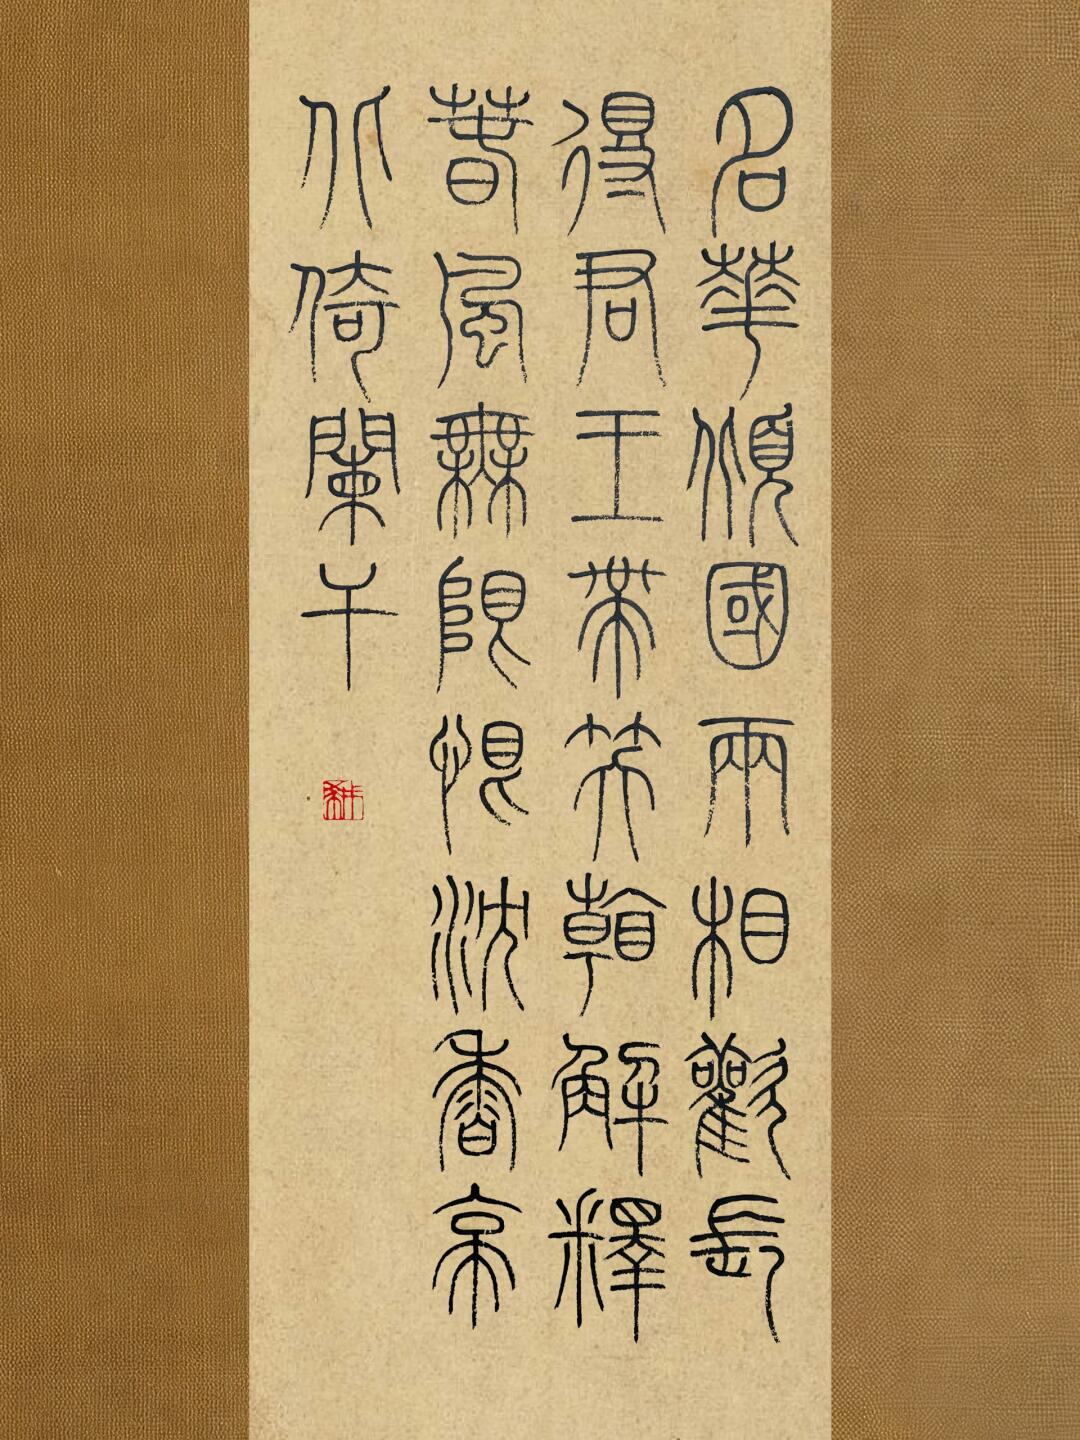 名華傾國兩相歡長
得君王帶笑看解釋
春風無限恨沈香亭
北倚闌干